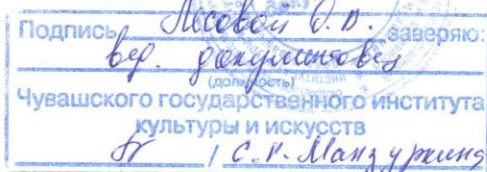 Подпись Лесовой О.В. заверяю:
вед. документовед
(должность)
Чувашского государственного института
культуры и искусств
/ С.Г. Мандрукина